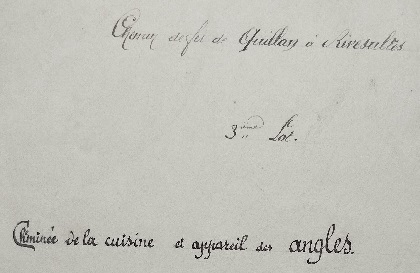 Chemin de fer de Quillan à Rivesaltes
3ème Lot.
Cheminée de la cuisine et appareil des angles.